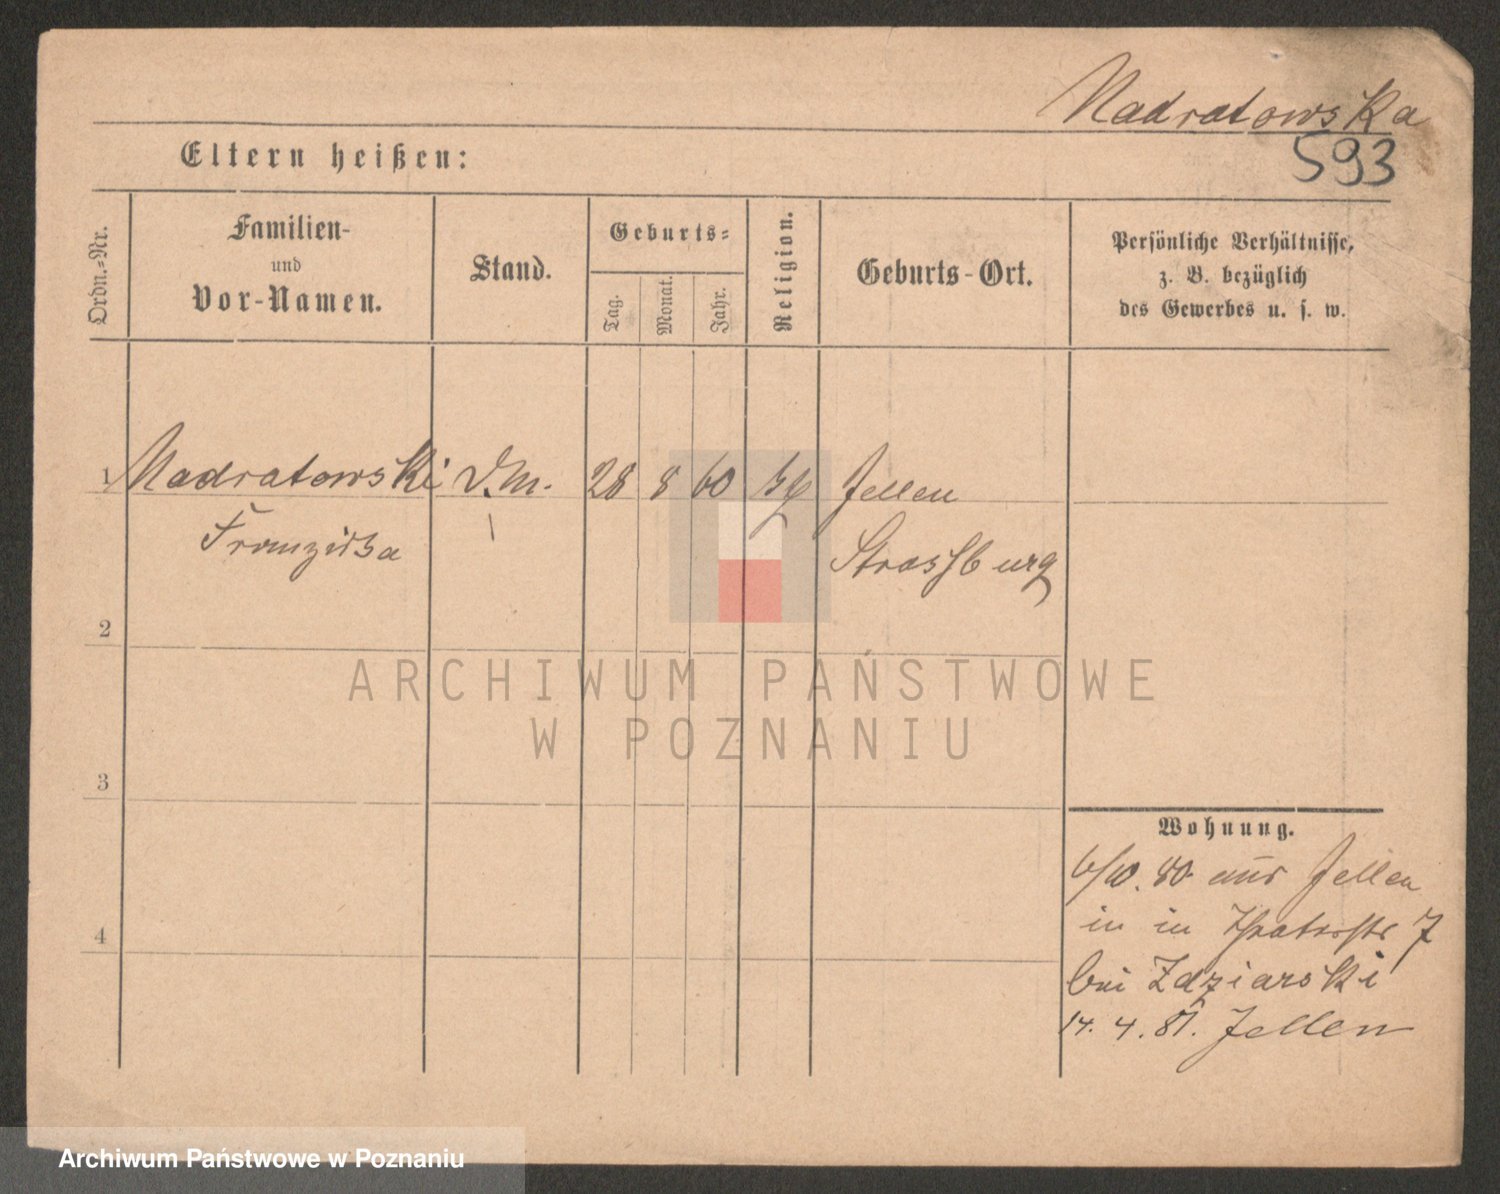 Nadratowska
593
Eltern heißen:
Ordn.-Nr.
Familien-
und
Vor-Namen.
Stand.
Geburts-
Tag.
Monat.
Jahr.
Religion.
Geburts-Ort.
Persönliche Verhältnisse,
z. B. bezüglich
des Gewerbes u. s. w.
1 Nadratowski D.M. 28 8 60 Jellen
Franziska Strassburg
2
ARCHIWUM PAŃSTWOWE
W POZNANIU
3
4
Wohnung.
6/10. 80 aus Jellen
in in Theaterstr 7
bei Zdziarski
14. 4. 81. Jellen
Archiwum Państwowe w Poznaniu